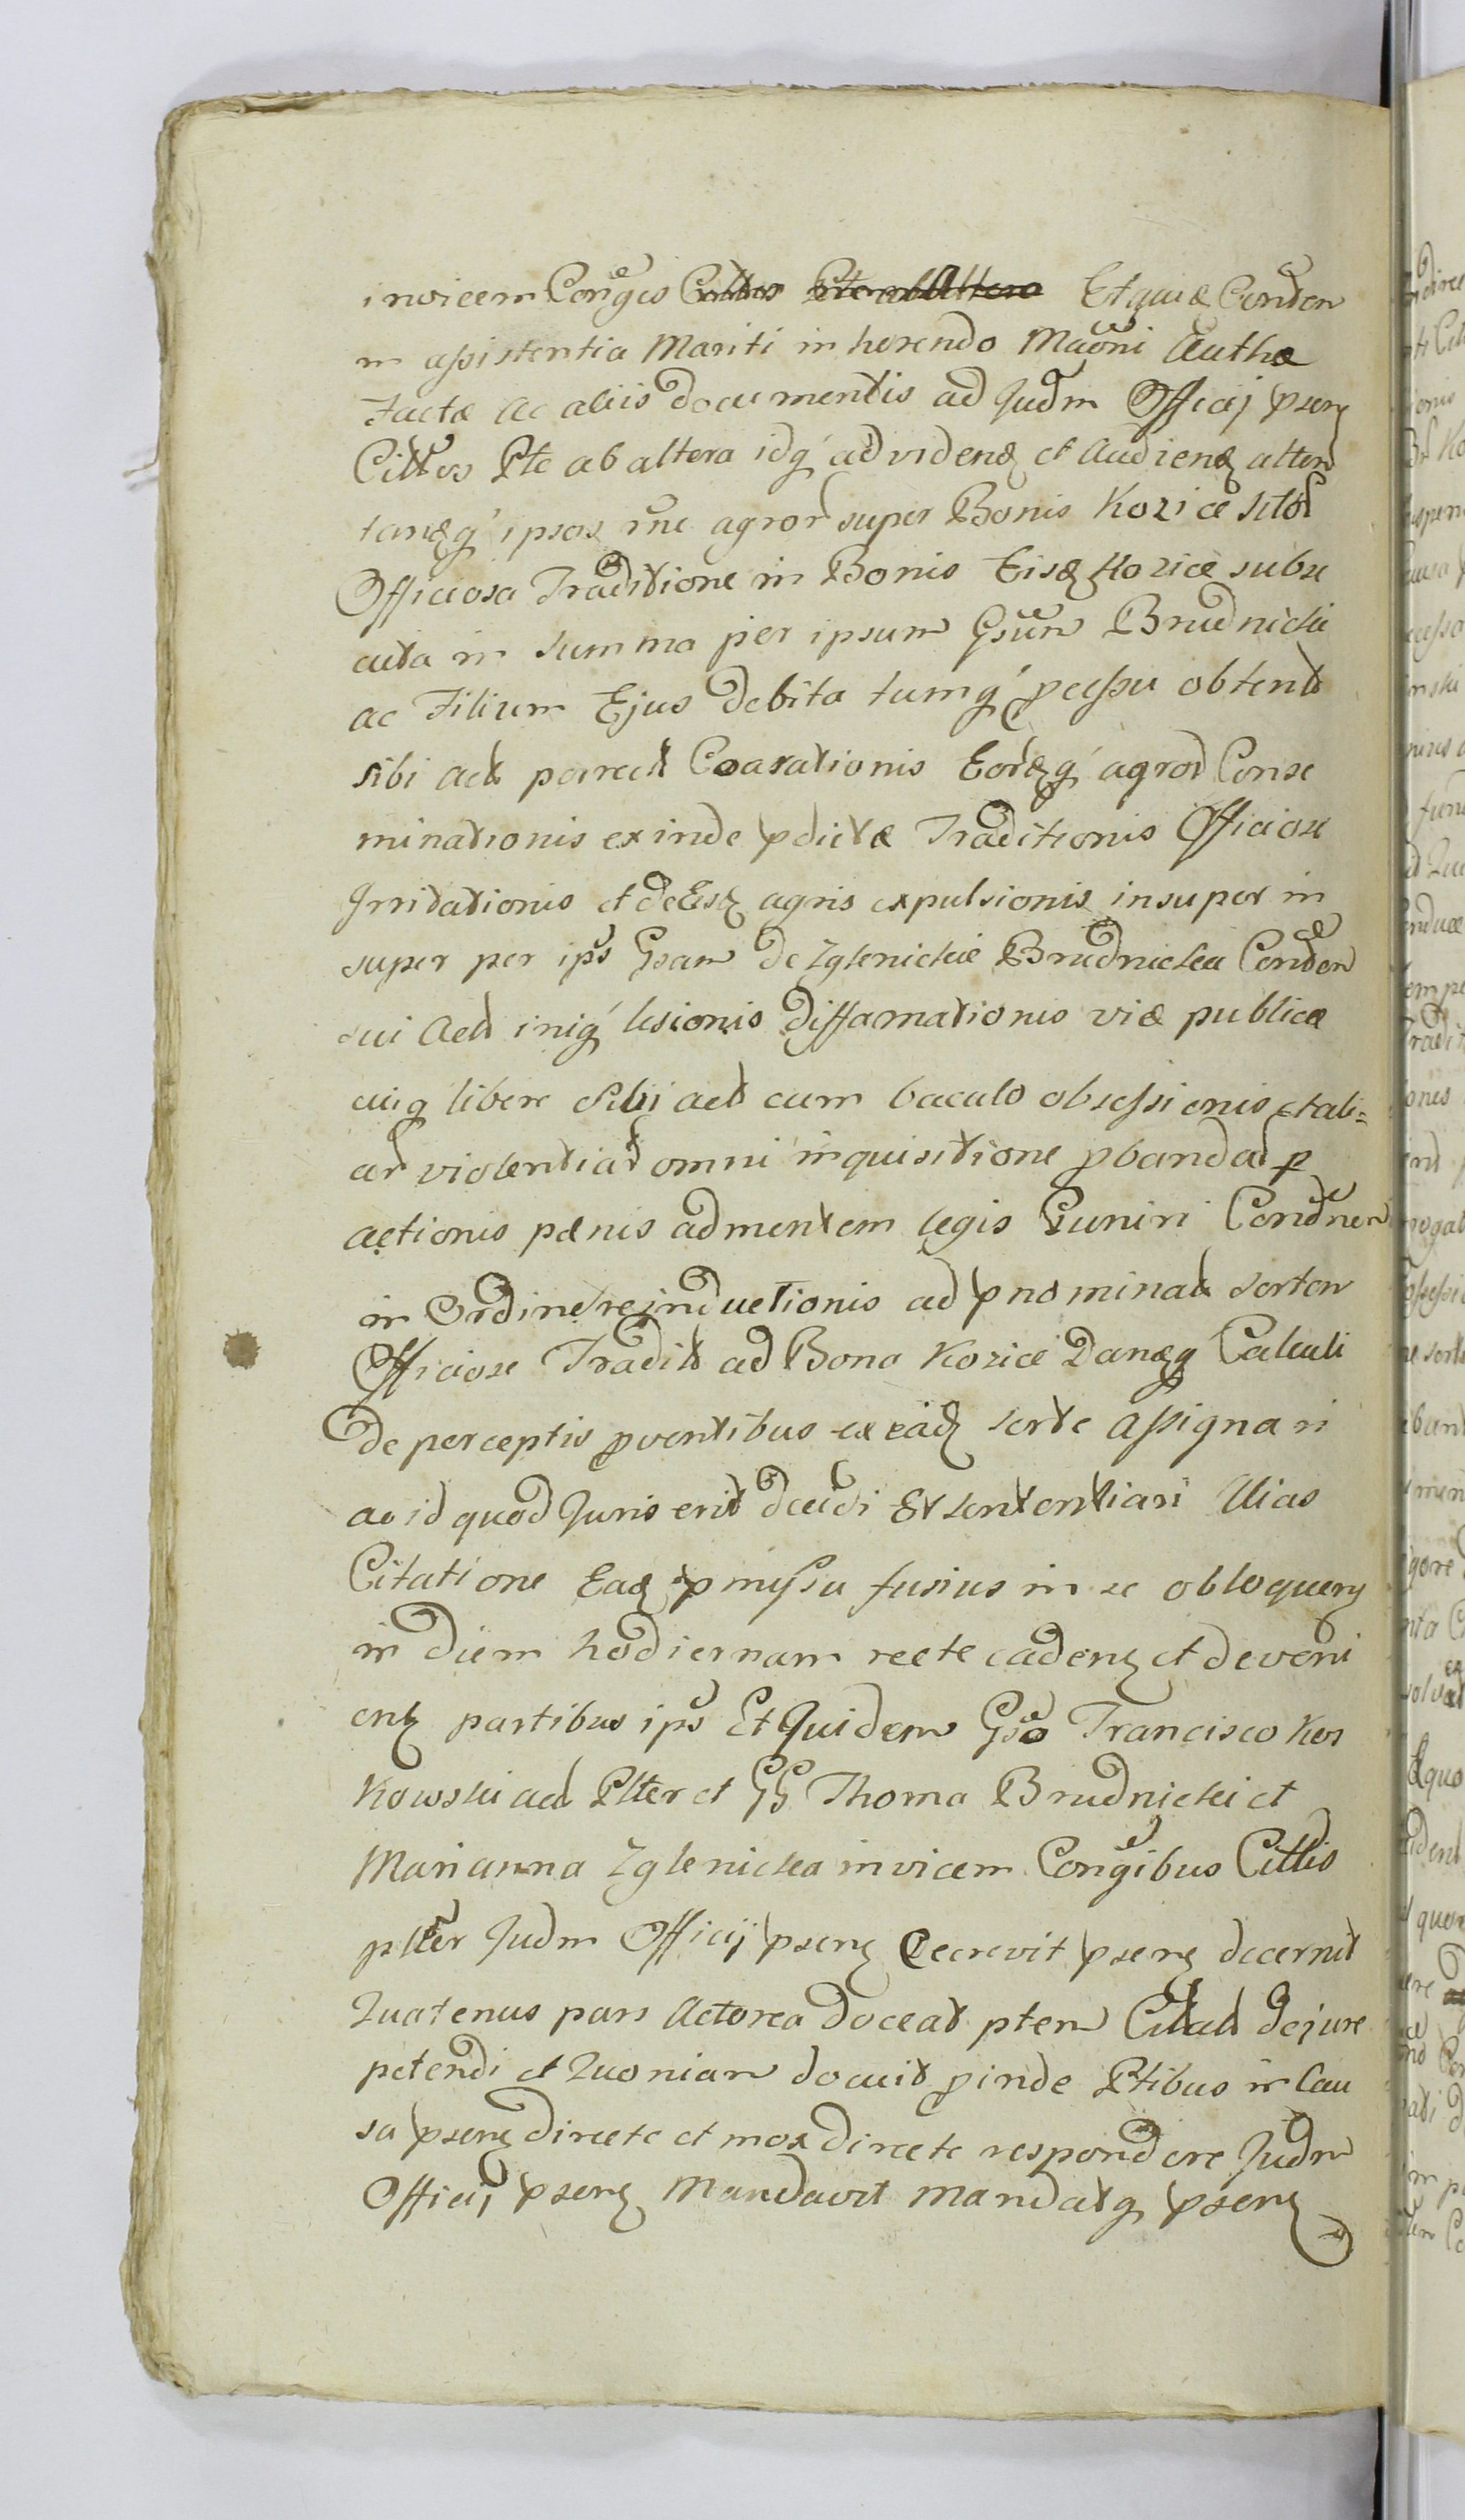 invicem Conges Cittos Pte ab Altera Et quidē Conden
in assistentia Mariti in herendo Maōni Authæ
Factæ ac aliis documentis ad Judm Officij pseng
Cittos Pte ab altera idq' ad videnđ et Audienđ atten
tanđq' ipsos rne agror super Bonis Kozice sitor
Officiosa Traditione in Bonis Eisđ Kozice subse
cuta in summa per ipsum Gsum Brudnicki
ac Filium Ejus debita tumq' pcessu obtent
sibi act porrect Coarationis Eorđq' agror Conse
minationis exinde pdictæ Traditionis Officiosæ
Irritationis et de Eisđ agris expulsionis insuper in
super per ips Gsam de Zglenickie Brudnicka Conđen
sui Act iniq' lesionis diffamationis viæ publicæ
cuiq libere sibi act cum baculo obsessionis et ali=
ar violentiar omni inquisitione pbandar p
actionis pænis ad mentem legis Puniri Condnen
in Ordine reinductionis ad pnominat sorten
Officiose Tradit ad Bona Kozice Danđq Calculi
de perceptis pventibus ex eađ sorte assignari
ac id quod Juris erit decidi Et sententiari Alias
Citatione Eađ pmissa fusius in se obloqueng
in diem hodiernam recte cadeng et deveni
eng partibus ips Et Quidem Gso Francisco Kos
kowski act Plter et GG Thoma Brudnicki et
Marianna Zglenicka invicem Congibus Cittis
plter Judm Officij pseng Decrevit pseng decernit
Quatenus pars Actorea doceat ptem Citat de jure
petendi et Quoniam docuit pinde Ptibus in Cau
sa pseng directe et mox directe respondere Judm
Officij pseng Mandavit mandatq pseng